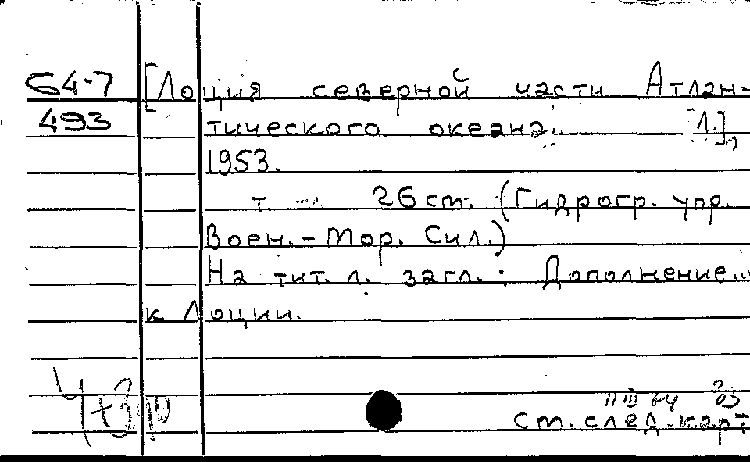 64-7 [Лоция северной части Атлан-
493 тического океана. Л.],
1953.
т 26 см. (Гидрогр. упр.
Воен.-Мор. Сил.)
На тит. л. загл.: Дополнение...
к Лоции.
См. след. карт